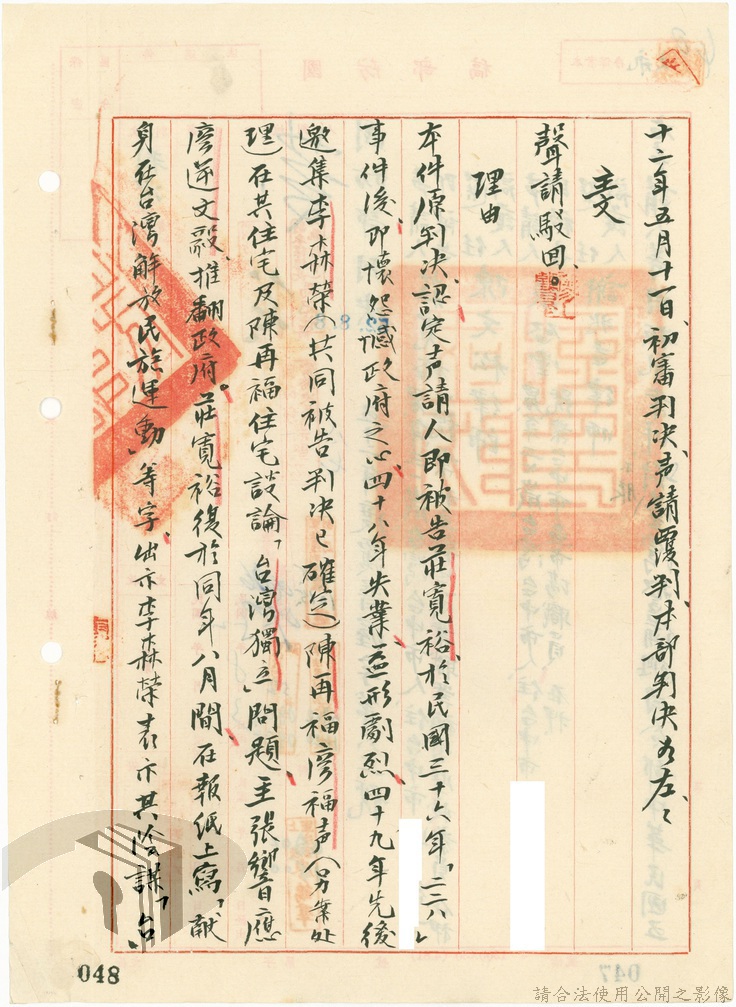 十二年五月十一日、初審判決、声請覆判、本部判決如左：
主文
聲請駁回。
理由
本件原判決、認定声請人即被告莊寬裕、於民國三十六年「二二八」
事件後、即懷怨憾政府之心、四十八年失業、益形劇烈、四十九年先後
邀集李森榮（共同被告判決已確定）陳再福廖福声（另案處
理）在其住宅及陳再福住宅談論「台灣獨立」問題、主張響應
廖逆文毅、推翻政府。莊寬裕復於同年八月間、在報紙上寫「献
身在台灣解放民族運動」等字、出示李森榮表示其陰謀「台
048
請合法使用公開之影像